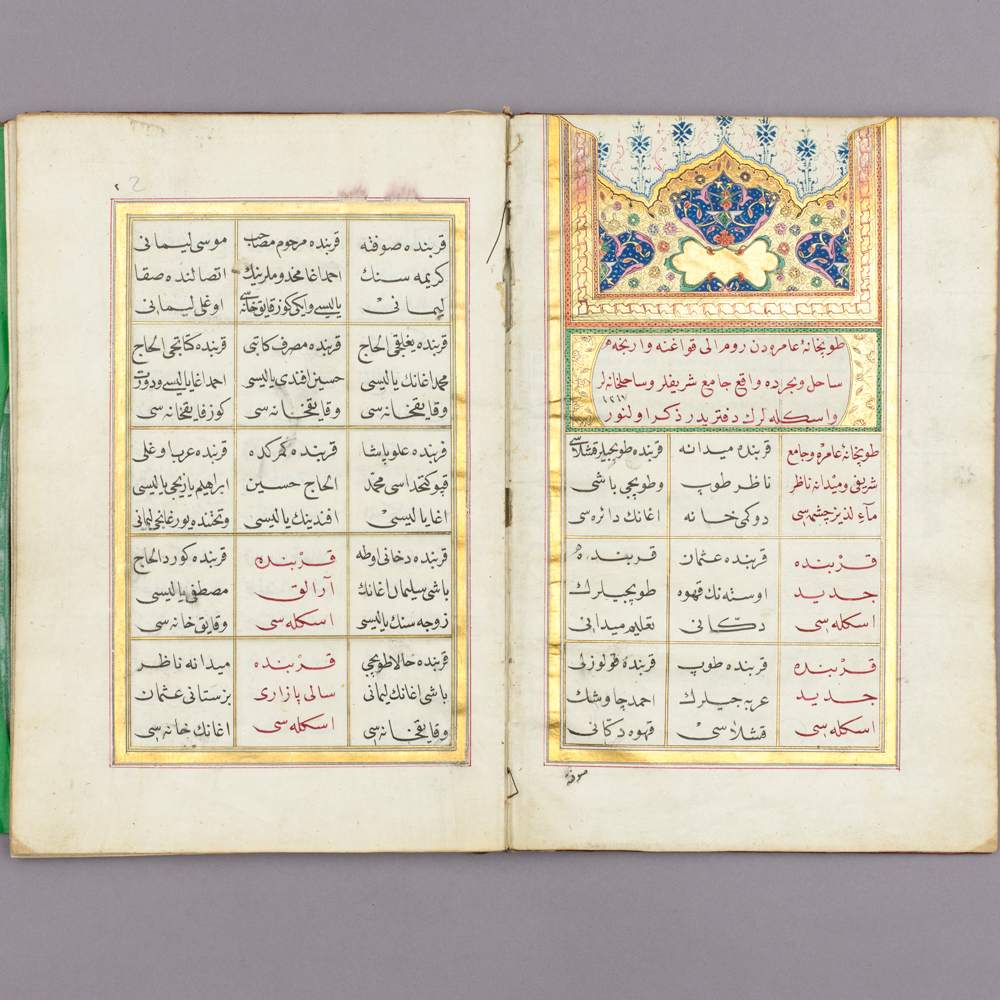 طوبخانهٔ عامره دن روم ایلی قواغنه وارنجه
ساحل بحرده واقع جامع شریفلر و ساحلخانه لر
واسکله لرك دفتریدر ذکر اولنور
١٢١٧
طوبخانهٔ عامره و جامع
شریفی و میدانه ناظر
ماء لذیذ چشمه سی
قربنده میدانه
ناظر طوپ
دوکمی خانه
قربنده طوبجیلر قشلاسی
و طوبجی باشی
اغانك دائره سی
قربنده
جدید
اسکله سی
قربنده عثمان
اوسته نك قهوه
دکانی
قربنده
طوبجیلرك
تعلیم میدانی
قربنده
جدید
اسکله سی
قربنده طوپ
عربه جیلرك
قشلاسی
قربنده قولوزلی
احمد چاوشك
قهوه دکانی
صوفته
٢
قربنده صوفته
کریمه سنك
لیمانی
قربنده مرحوم مصاحب
احمد اغا مخدوملرینك
یالیسی وایکی کوز قایقخانه سی
موسی لیمانی
اتصالنده صقا
اوغلی لیمانی
قربنده یغلقجی الحاج
محمد اغانك یالیسی
وقایقخانه سی
قربنده مصرف کاتبی
حسین افندی یالیسی
وقایقخانه سی
قربنده کتانجی الحاج
احمد اغا یالیسی ودورت
کوز قایقخانه سی
قربنده علو پاشا
قپو کتخداسی محمد
اغا یالیسی
قربنده کمرکده
الحاج حسین
افندینك یالیسی
قربنده عرب اوغلی
ابراهیم یازیجی یالیسی
وتحتنده یورغانجی لیمانی
قربنده دخانی اوطه
باشی سلیمان اغانك
زوجه سنك یالیسی
قربنده
آرالق
اسکله سی
قربنده کورد الحاج
مصطفی یالیسی
وقایق خانه سی
قربنده حالا طوبجی
باشی اغانك لیمانی
وقایقخانه سی
قربنده
سالی پازاری
اسکله سی
میدانه ناظر
بزستانی عثمان
اغانك خانه سی